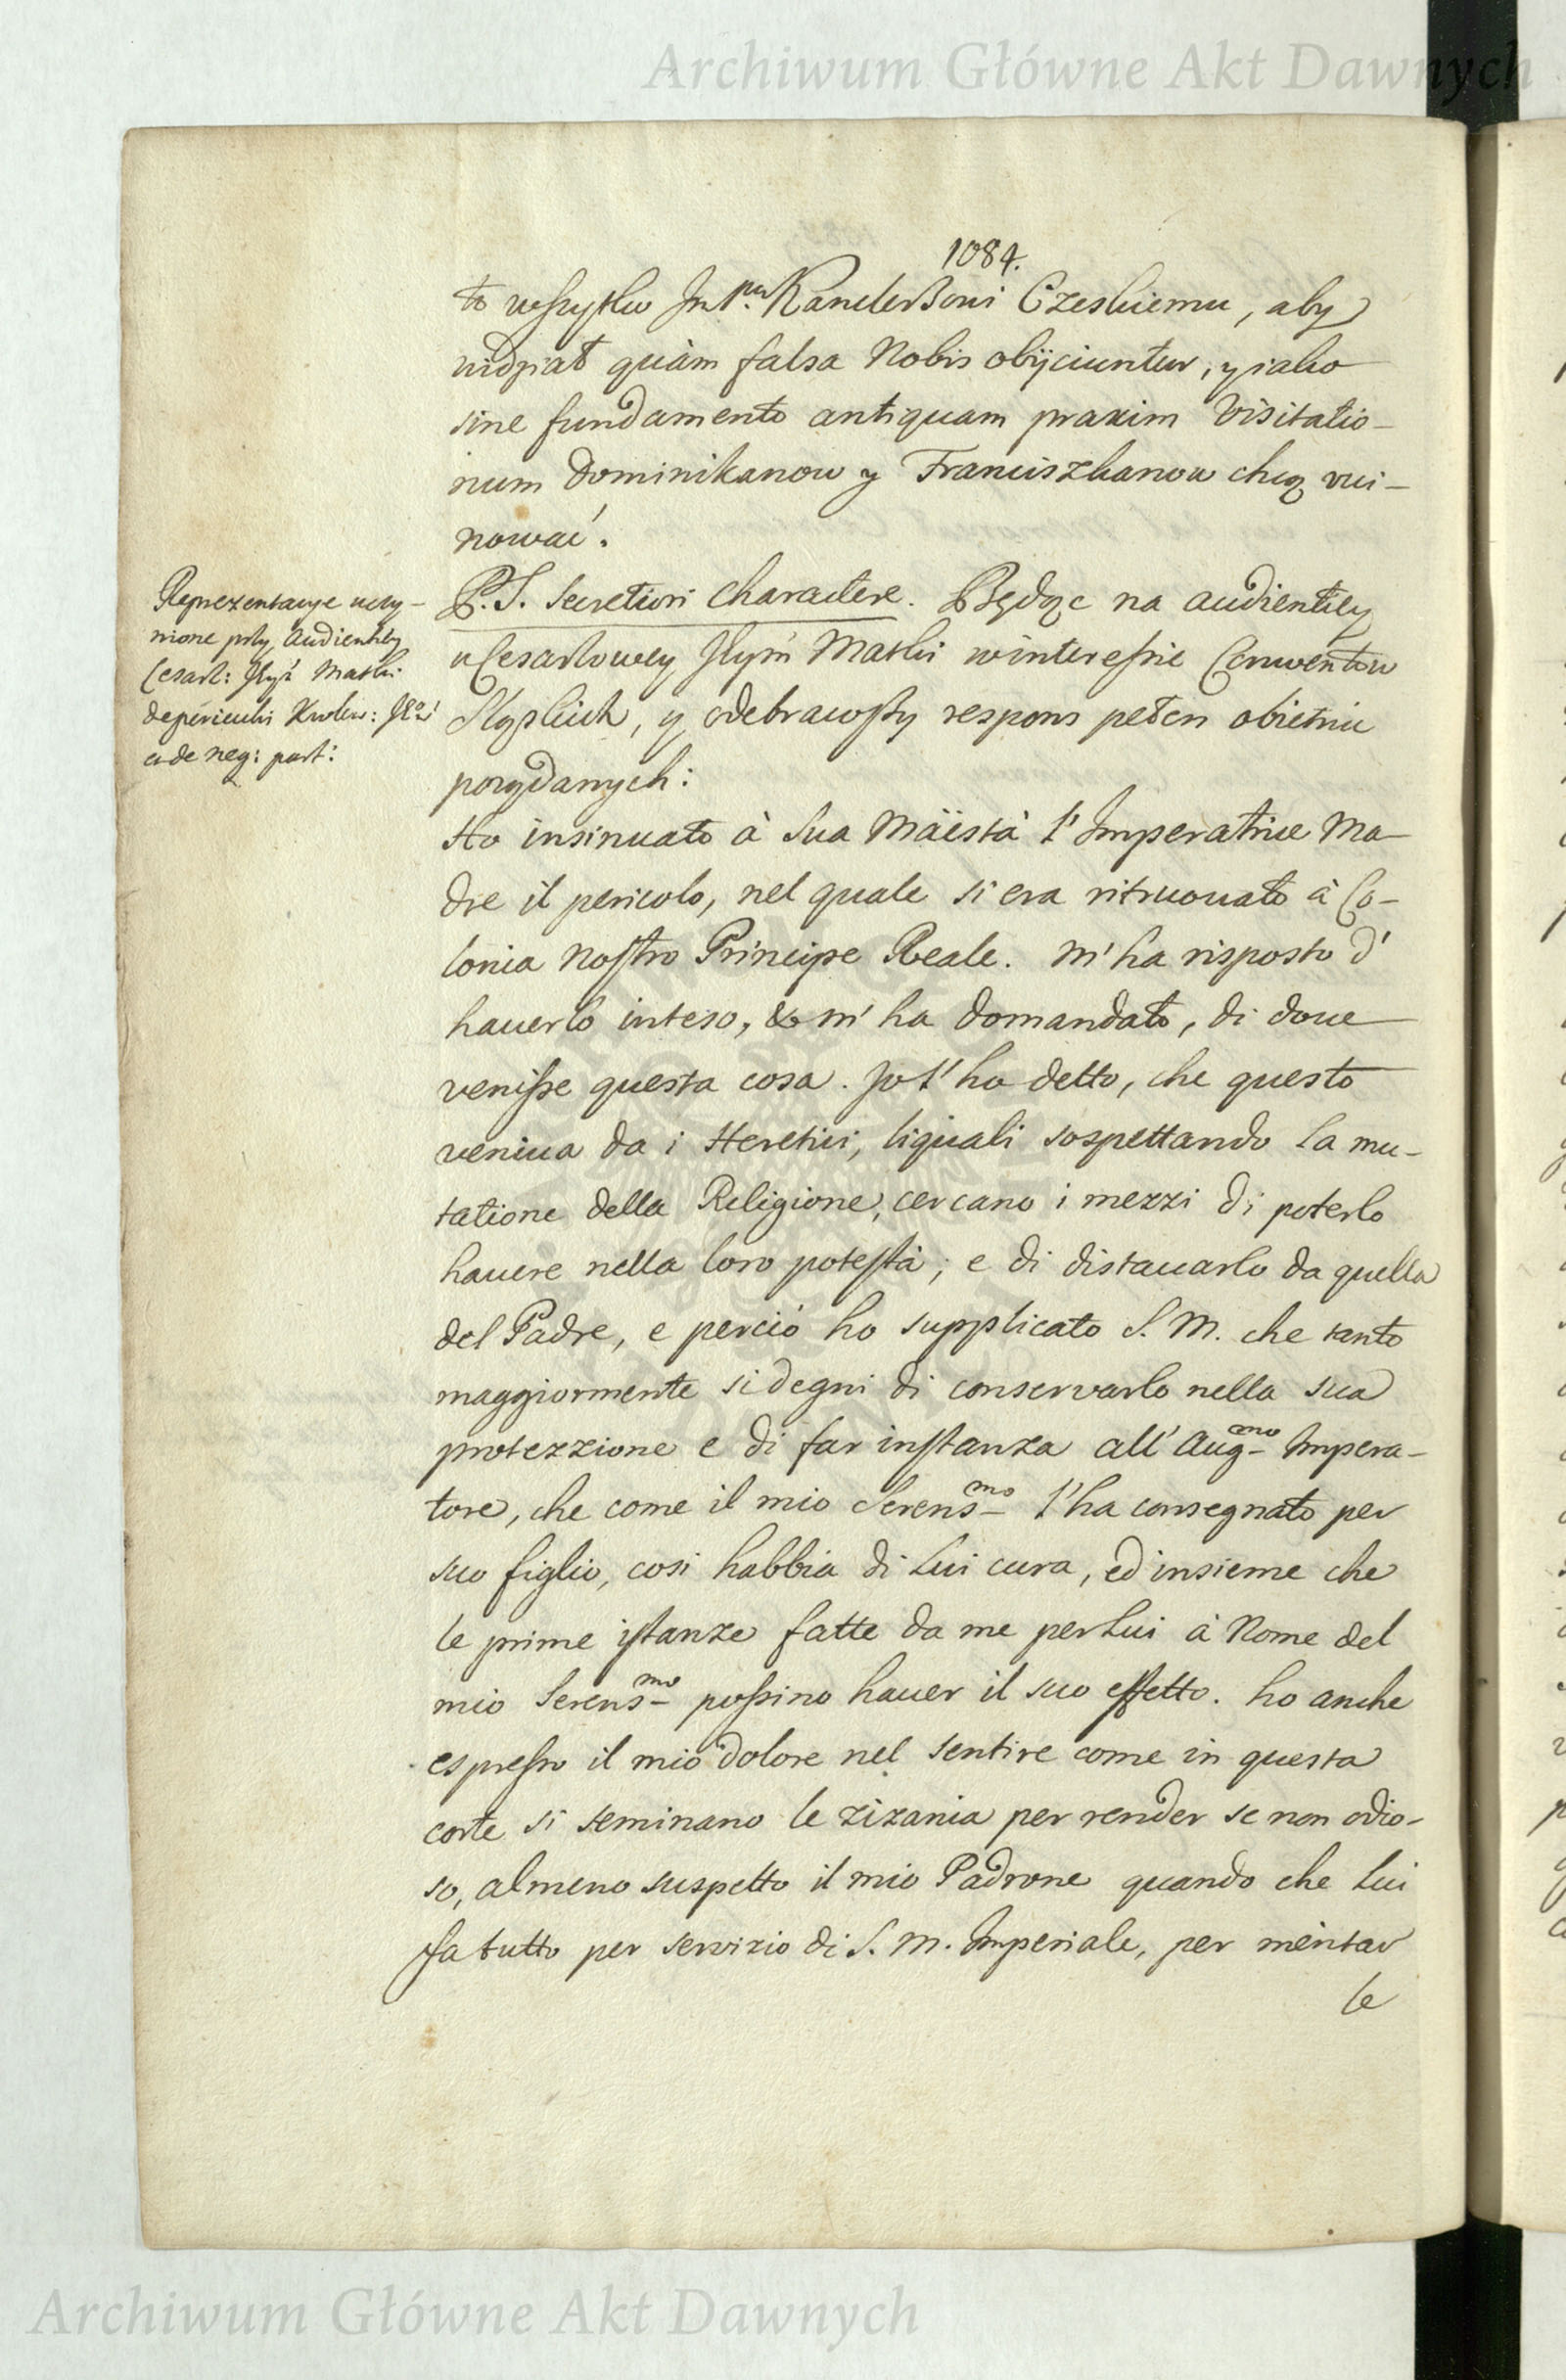 Archiwum Główne Akt Dawnych
1084.
to wszytko Jm Pnu Kanclerzowi Czeskiemu, aby
widział quàm falsa Nobis obijciuntur, y iako
sine fundamento antiquam praxim Visitatio-
num Dominikanow y Franciszkanow chcą rui-
nować.
P.S. Secretiori Charactere. Będąc na audientiey
u Cesarzowey Jeym Matki w interessie Conwentow
Sląskich, y odebrawszy respons pełen obietnic
pożądanych:
Ho insinuato à Sua Maëstà l'Imperatrice Ma-
dre il pericolo, nel quale si era ritruouato à Co-
lonia Nostro Principe Reale. M'ha risposto d'
hauerlo inteso, & m'ha domandato, di doue
venisse questa cosa. Jo l'ho detto, che questo
veniua da i Heretici, li quali sospettando la mu-
tatione della Religione, cercano i mezzi di poterlo
hauere nella loro potestà; e di distaccarlo da quella
del Padre, e perciò ho supplicato S. M. che tanto
maggiormente si degni di conservarlo nella sua
protezzione e di far instanza all' Aug-mo Impera-
tore, che come il mio Serens-mo l'ha consegnato per
suo figlio, cosi habbia di Lui cura, ed insieme che
le prime istanze fatte da me per Lui à Nome del
mio Serens-mo possino hauer il suo effetto. ho anche
espresso il mio dolore nel sentire come in questa
corte si seminano le zizania per render se non odio-
so, almeno suspetto il mio Padrone quando che Lui
fa tutto per servizio di S. M. Imperiale, per meritar
le
Reprezentacye uczy-
nione przy Audientiey
Cesarz: Jeym Matki
de periculis Krolew:
et de neg: part:
Archiwum Główne Akt Dawnych